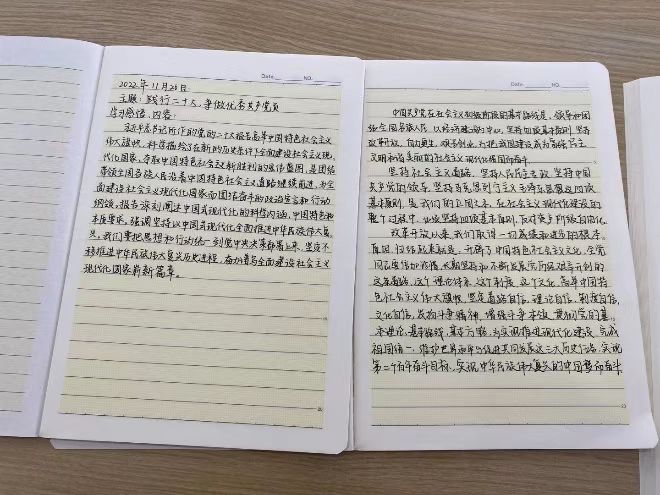 Date. NO.
2022年11月20日
主题:践行二十大,争做优秀共产党员
学习感悟、内容:
习近平总书记所作的党的二十大报告高举中国特色社会主义
伟大旗帜,科学描绘了在新的历史条件下全面建设社会主义现
代化国家、夺取中国特色社会主义新胜利的宏伟蓝图,是团结
带领全国各族人民沿着中国特色社会主义道路继续前进、为全
面建设社会主义现代化国家而团结奋斗的政治宣言和行动
纲领,报告深刻阐述中国式现代化的科学内涵,中国特色和
本质要求,强调坚持以中国式现代化全面推进中华民族伟大复
兴,我们要把思想和行动统一到党中央决策部署上来,坚定不
移推进中华民族伟大复兴历史进程,奋力谱写全面建设社会主义
现代化国家崭新篇章。
20
Date. NO.
中国共产党在社会主义初级阶段的基本路线是,领导和团
结全国各族人民,以经济建设为中心,坚持四项基本原则,坚持
改革开放,自力更生,艰苦创业,为把我国建设成为富强民主
文明和谐美丽的社会主义现代化强国而奋斗。
坚持社会主义道路、坚持人民民主专政、坚持中国
共产党的领导、坚持马克思列宁主义毛泽东思想这四项
基本原则,是我们的立国之本,在社会主义现代化建设的
整个过程中,必须坚持四项基本原则,反对资产阶级自由化。
改革开放以来,我们取得一切成绩和进步的根本
原因,归结起来就是:开辟了中国特色社会主义文化,全党
同志要倍加珍惜,长期坚持和不断发展党历经艰辛开创的
这条道路、这个理论体系、这个制度、这个文化,高举中国特
色社会主义伟大旗帜,坚定道路自信、理论自信、制度自信、
文化自信,发扬斗争精神,增强斗争本领,贯彻党的基
本理论、基本路线、基本方略,为实现推进现代化建设、完成
祖国统一、维护世界和平与促进共同发展这三大历史任务,实现
第二个百年奋斗目标、实现中华民族伟大复兴的中国梦而奋斗
20